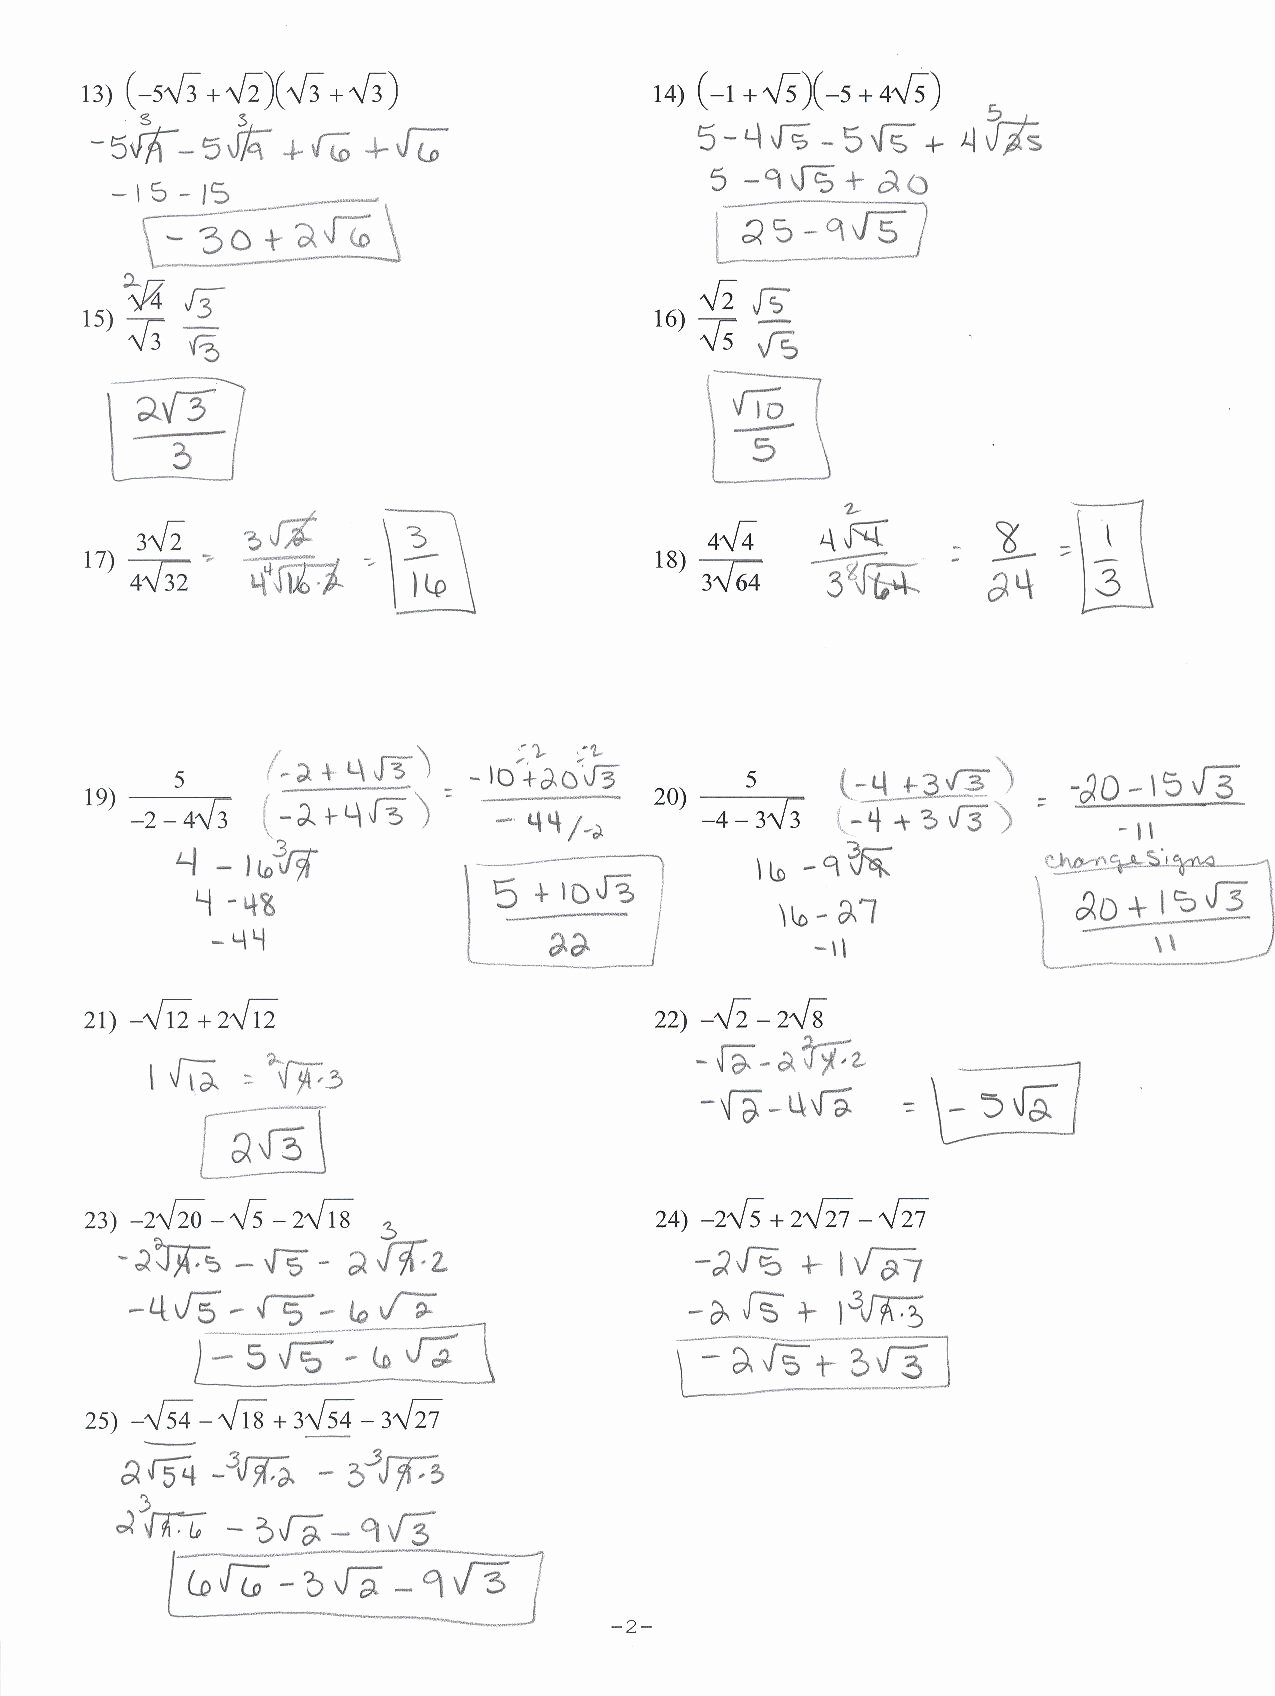 13) (−5√3 + √2)(√3 + √3)
-5√9 - 5√9 + √6 + √6
3 3
-15 - 15
-30 + 2√6
14) (−1 + √5)(−5 + 4√5)
5 - 4√5 - 5√5 + 4√25
5
5 - 9√5 + 20
25 - 9√5
15) √4/√3 √3/√3
2
2√3/3
16) √2/√5 √5/√5
√10/5
17) 3√2/4√32 = 3√2/4 4√16·2 = 3/16
18) 4√4/3√64 4√4/3 8√64 = 8/24 = 1/3
2
19) 5/(−2 − 4√3) (-2 + 4√3)/(-2 + 4√3) = -10 + 20√3/-44/-2
÷-2 ÷-2
4 - 16 3√9
4 - 48
-44
5 + 10√3/22
20) 5/(−4 − 3√3) (-4 + 3√3)/(-4 + 3√3) = -20 - 15√3/-11
16 - 9 3√9
16 - 27
-11
change signs
20 + 15√3/11
21) −√12 + 2√12
1√12 = 2√4·3
2√3
22) −√2 − 2√8
-√2 - 2 2√4·2
-√2 - 4√2 = -5√2
23) −2√20 − √5 − 2√18
-2 2√4·5 - √5 - 2 3√9·2
-4√5 - √5 - 6√2
-5√5 - 6√2
24) −2√5 + 2√27 − √27
-2√5 + 1√27
-2√5 + 1 3√9·3
-2√5 + 3√3
25) −√54 − √18 + 3√54 − 3√27
2√54 - 3√9·2 - 3 3√9·3
2 3√9·6 - 3√2 - 9√3
6√6 - 3√2 - 9√3
-2-